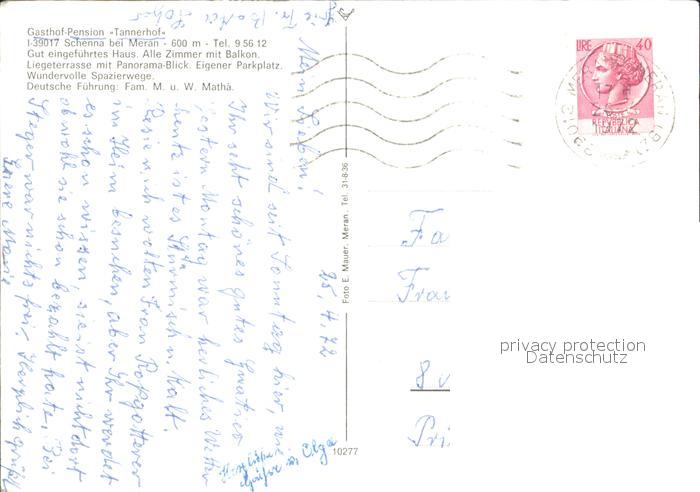 Gasthof-Pension «Tannerhof»
I-39017 Schenna bei Meran - 600 m - Tel. 9 56 12
Gut eingeführtes Haus. Alle Zimmer mit Balkon.
Liegeterrasse mit Panorama-Blick. Eigener Parkplatz.
Wundervolle Spazierwege.
Deutsche Führung: Fam. M. u. W. Mathà.
25.4.72
Meine Lieben!
Wir sind seit Sonntag hier, wir
Ihr seht schönes gutes Quartier
gestern Montag war herliches Wetter
heute ist es stürmisch u. kalt.
Resie u. ich wollten Frau Roßgotterer
im Heim besuchen, aber Ihr werdet
es schon wissen, sie ist nicht dort
obwohl sie schon bezahlt hatte. Bei
Steger war nichts frei, Herzlich grüßt
Eure Marie
Herzliche
Grüße Olga
Foto E. Mauer, Meran, Tel. 31-8-36
10277
LIRE 40
REPUBBLICA
ITALIANA
Fa
Frau
8
Pri
privacy protection
Datenschutz